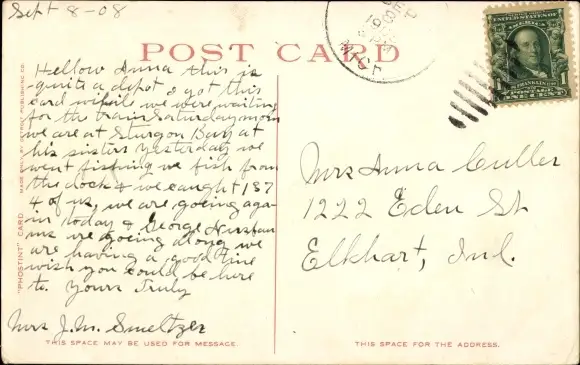 Sept 8-08
POST CARD
Hellow Anna this is
quite a depot & got this
card while we were waiting
for the train Saturday morn
we are at Sturgon Bay at
his sisters yesterday we
went fishing we fish from
the dock & we caught 187
4 of us, we are going aga-
in today & George
we are going along we
are having a good time
wish you could be here
to. Yours Truly
Mrs J. M. Smeltzer
THIS SPACE MAY BE USED FOR MESSAGE.
"PHOSTINT" CARD MADE ONLY BY DETROIT PUBLISHING CO.
MICH
UNITED STATES OF AMERICA
FRANKLIN
1 1
POSTAGE
ONE CENT
Mrs Anna Culler
1222 Eden St
Elkhart, Ind.
THIS SPACE FOR THE ADDRESS.